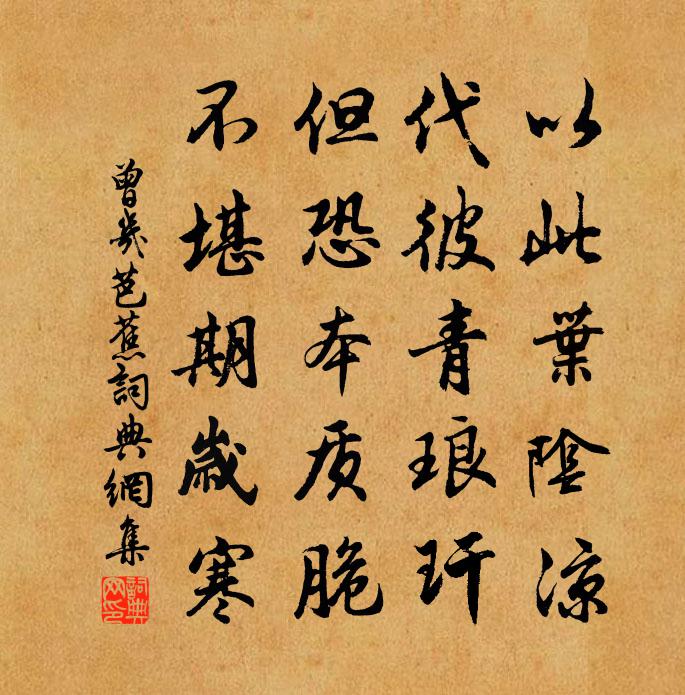 以此葉陰涼
代彼青琅玕
但恐本质脆
不堪期歲寒
曾幾芭蕉詞典網集
詞典網印